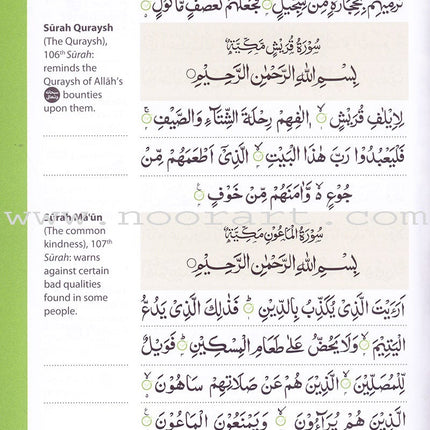 تَرْمِيْهِمْ بِحِجَارَةٍ مِّنْ سِجِّيْلٍ فَجَعَلَهُمْ كَعَصْفٍ مَّاْكُوْلٍ
Sūrah Quraysh
(The Quraysh),
106th Sūrah:
reminds the
Quraysh of Allāh's
bounties
upon them.
سُوْرَةُ قُرَيْشٍ مَكِّيَّةٌ
بِسْمِ اللهِ الرَّحْمٰنِ الرَّحِيْمِ
لِاِيْلٰفِ قُرَيْشٍ اٖلٰفِهِمْ رِحْلَةَ الشِّتَآءِ وَالصَّيْفِ
فَلْيَعْبُدُوْا رَبَّ هٰذَا الْبَيْتِ الَّذِيْٓ اَطْعَمَهُمْ مِّنْ
جُوْعٍ ۙ وَّاٰمَنَهُمْ مِّنْ خَوْفٍ
www.noorart.com
Sūrah Mā'ūn
(The common
kindness), 107th
Sūrah: warns
against certain
bad qualities
found in some
people.
سُوْرَةُ الْمَاعُوْنَ مَكِّيَّةٌ
بِسْمِ اللهِ الرَّحْمٰنِ الرَّحِيْمِ
اَرَءَيْتَ الَّذِيْ يُكَذِّبُ بِالدِّيْنِ فَذٰلِكَ الَّذِيْ يَدُعُّ
الْيَتِيْمَ وَلَا يَحُضُّ عَلٰى طَعَامِ الْمِسْكِيْنِ فَوَيْلٌ
لِّلْمُصَلِّيْنَ الَّذِيْنَ هُمْ عَنْ صَلَاتِهِمْ سَاهُوْنَ
الَّذِيْنَ هُمْ يُرَآءُوْنَ وَيَمْنَعُوْنَ الْمَاعُوْنَ